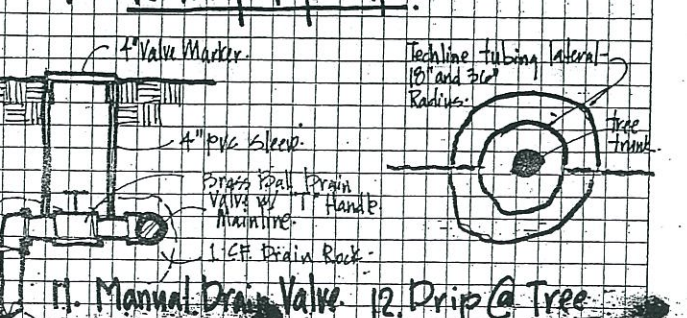 4" Valve Marker.
4" pvc sleev.
Brass Ball Drain
Valve w/ "T" Handle.
Mainline.
1 C.F. Drain Rock.
11. Manual Drain Valve.
Techline tubing lateral
18" and 36"
Radius.
tree
trunk.
12. Drip @ Tree